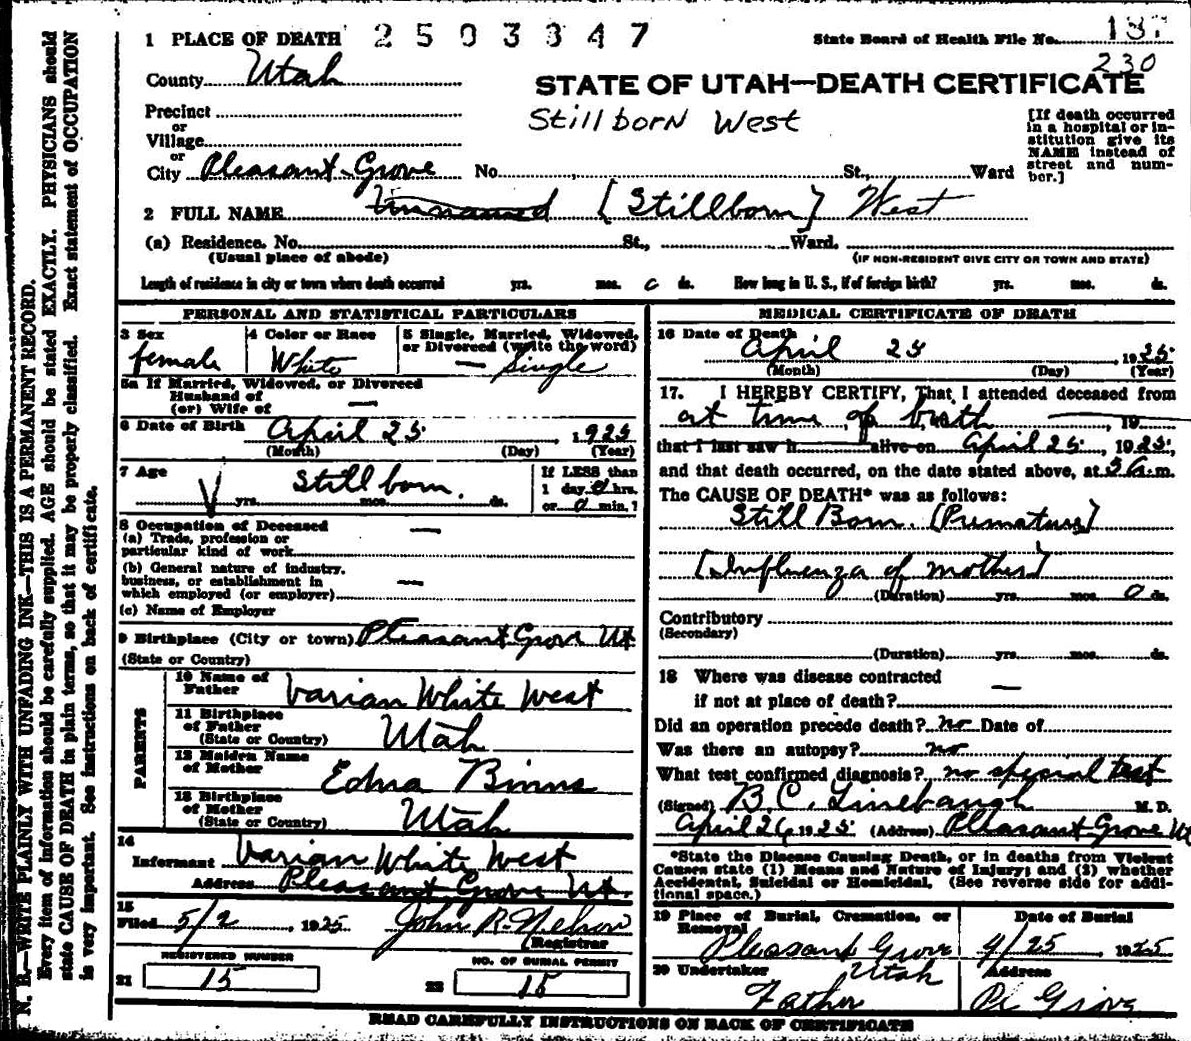 1 PLACE OF DEATH 2503347
State Board of Health File No. 137
230
County Utah
STATE OF UTAH—DEATH CERTIFICATE
Stillborn West
Precinct
or
Village
or
City Pleasant Grove No. St., Ward
[If death occurred
in a hospital or in-
stitution give its
NAME instead of
street and num-
ber.]
2 FULL NAME Unnamed [Stillborn] West
(a) Residence. No. St., Ward.
(Usual place of abode) (IF NON-RESIDENT GIVE CITY OR TOWN AND STATE)
Length of residence in city or town where death occurred yrs. mos. 0 ds. How long in U. S., if of foreign birth? yrs. mos. ds.
PERSONAL AND STATISTICAL PARTICULARS
3 Sex 4 Color or Race 5 Single, Married, Widowed,
or Divorced (write the word)
female White — Single
5a If Married, Widowed, or Divorced
Husband of
(or) Wife of —
6 Date of Birth April 25, 1925
(Month) (Day) (Year)
7 Age Stillborn.
yrs. mos. ds.
If LESS than
1 day 0 hrs.
or 0 min.?
8 Occupation of Deceased —
(a) Trade, profession or
particular kind of work
(b) General nature of industry,
business, or establishment in —
which employed (or employer)
(c) Name of Employer
9 Birthplace (City or town) Pleasant Grove Ut
(State or Country)
PARENTS
10 Name of
Father Varian White West
11 Birthplace
of Father
(State or Country) Utah
12 Maiden Name
of Mother Edna Binns
13 Birthplace
of Mother
(State or Country) Utah
14
Informant Varian White West
Address Pleasant Grove Ut.
15
Filed 5/2, 1925 John R. Nelson
Registrar
REGISTERED NUMBER NO. OF BURIAL PERMIT
21 15 22 15
MEDICAL CERTIFICATE OF DEATH
16 Date of Death
April 25, 1925
(Month) (Day) (Year)
17. I HEREBY CERTIFY, That I attended deceased from
at time of birth, 19
that I last saw h alive on April 25, 1925,
and that death occurred, on the date stated above, at 3 a.m.
The CAUSE OF DEATH* was as follows:
Still Born. (Premature)
[Influenza of mother]
(Duration) yrs. mos. 0 ds.
Contributory
(Secondary)
(Duration) yrs. mos. ds.
18 Where was disease contracted
if not at place of death? —
Did an operation precede death? no Date of
Was there an autopsy? no
What test confirmed diagnosis? no special test
(Signed) B. C. Linebaugh M. D.
April 26, 1925 (Address) Pleasant Grove Ut
*State the Disease Causing Death, or in deaths from Violent
Causes state (1) Means and Nature of Injury; and (2) whether
Accidental, Suicidal or Homicidal. (See reverse side for addi-
tional space.)
19 Place of Burial, Cremation, or
Removal
Date of Burial
Pleasant Grove 4/25 1925
Utah
20 Undertaker Address
Father Pl Grove
READ CAREFULLY INSTRUCTIONS ON BACK OF CERTIFICATE
N. B.—WRITE PLAINLY WITH UNFADING INK—THIS IS A PERMANENT RECORD.
Every item of information should be carefully supplied. AGE should be stated EXACTLY. PHYSICIANS should
state CAUSE OF DEATH in plain terms, so that it may be properly classified. Exact statement of OCCUPATION
is very important. See instructions on back of certificate.